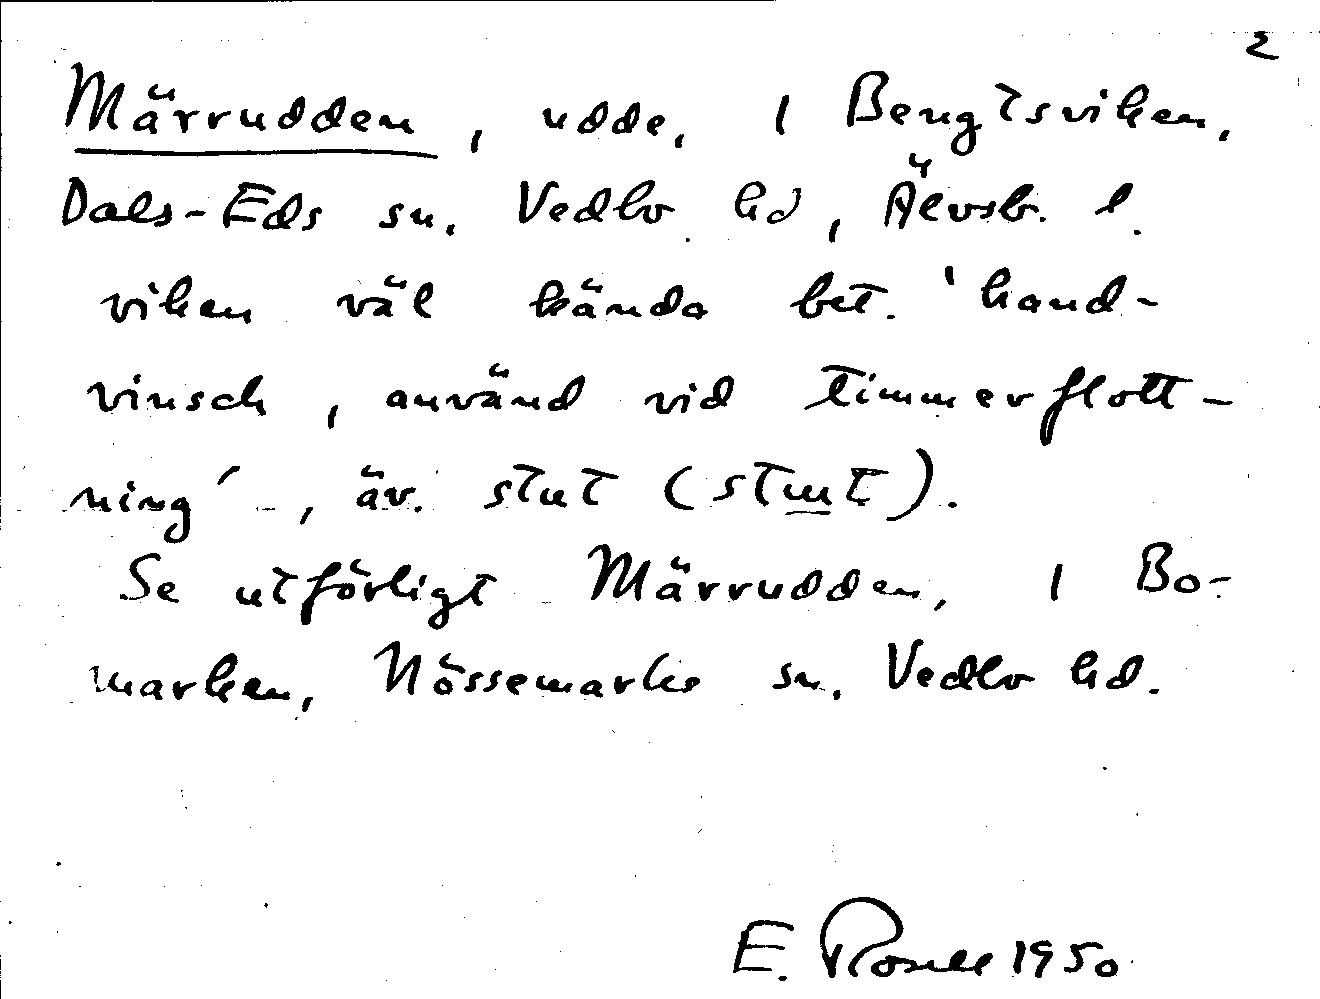 2
Märrudden, udde, 1 Bengtsviken,
Dals-Eds sn. Vedbo hd, Älvsb. l.
viken väl kända bet. 'hand-
vinsch, använd vid timmerflott-
ning', äv. stut (stut).
Se utförligt Märrudden, 1 Bo-
marken, Nössemarks sn. Vedbo hd.
E. Rosell 1950